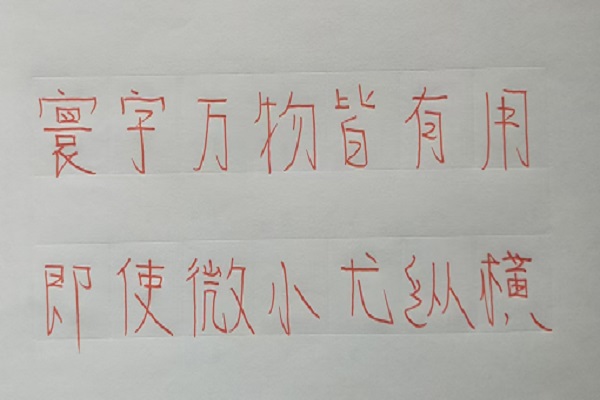 寰宇万物皆有用
即使微小尤纵横